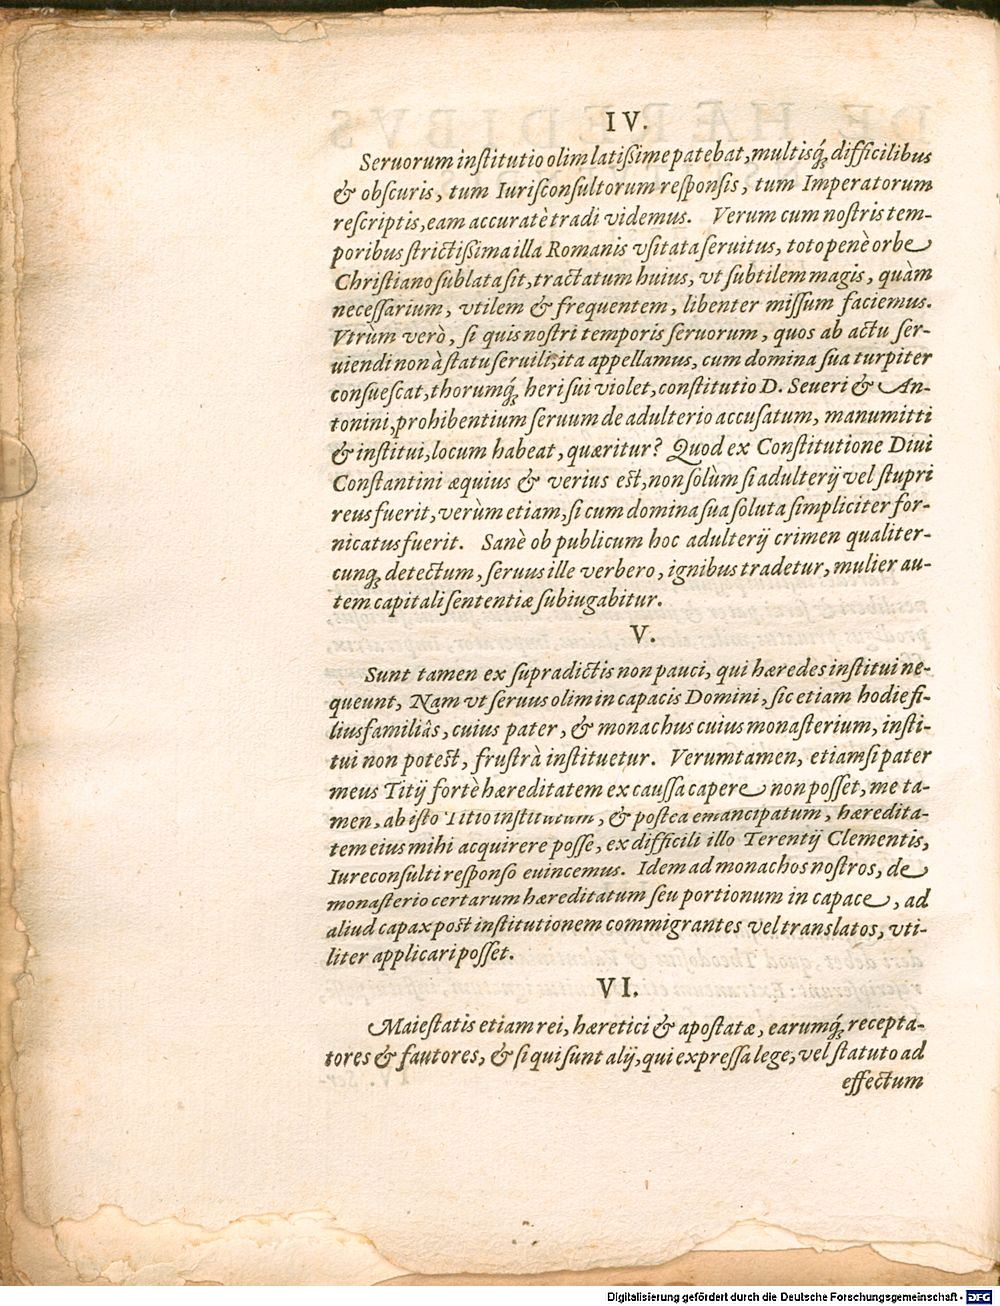 IV.
Seruorum institutio olim latißime patebat, multisq́; difficilibus
& obscuris, tum Iurisconsultorum responsis, tum Imperatorum
rescriptis, eam accuratè tradi videmus. Verum cum nostris tem-
poribus strictißima illa Romanis vsitata seruitus, toto penè orbe
Christiano sublata sit, tractatum huius, vt subtilem magis, quàm
necessarium, vtilem & frequentem, libenter missum faciemus.
Vtrùm verò, si quis nostri temporis seruorum, quos ab actu ser-
uiendi non à statu seruili, ita appellamus, cum domina sua turpiter
consuescat, thorumq́; heri sui violet, constitutio D. Seueri & An-
tonini, prohibentium seruum de adulterio accusatum, manumitti
& institui, locum habeat, quæritur? Quod ex Constitutione Diui
Constantini æquius & verius est, non solùm si adulterij vel stupri
reus fuerit, verùm etiam, si cum domina sua soluta simpliciter for-
nicatus fuerit. Sanè ob publicum hoc adulterij crimen qualiter-
cunq; detectum, seruus ille verbero, ignibus tradetur, mulier au-
tem capitali sententiæ subiugabitur.
V.
Sunt tamen ex supradictis non pauci, qui hæredes institui ne-
queunt, Nam vt seruus olim incapacis Domini, sic etiam hodie fi-
liusfamiliâs, cuius pater, & monachus cuius monasterium, insti-
tui non potest, frustrà instituetur. Verumtamen, etiamsi pater
meus Titij fortè hæreditatem ex caussa capere non posset, me ta-
men, ab isto Titio institutum, & postea emancipatum, hæredita-
tem eius mihi acquirere posse, ex difficili illo Terentij Clementis,
Iureconsulti responso euincemus. Idem ad monachos nostros, de
monasterio certarum hæreditatum seu portionum in capace, ad
aliud capax post institutionem commigrantes vel translatos, vti-
liter applicari posset.
VI.
Maiestatis etiam rei, hæretici & apostatæ, earumq́; recepta-
tores & fautores, & si qui sunt alij, qui expressa lege, vel statuto ad
effectum
Digitalisierung gefördert durch die Deutsche Forschungsgemeinschaft - DFG